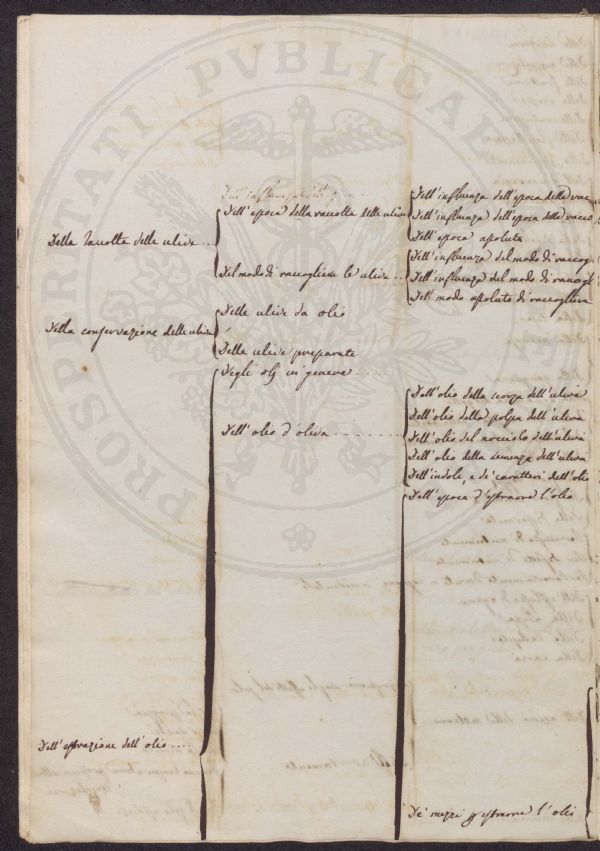 PROSPERITATI PVBLICAE
Dell'influenza dell'epoca della racc
Dell'epoca della raccolta delle ulive
Dell'influenza dell'epoca della racco
Dell'epoca assoluta
Della raccolta delle ulive
Dell'influenza del modo di raccog
Del modo di raccogliere le ulive
Dell'influenza del modo di raccogl
Del modo assoluto di raccogliere
Delle ulive da olio
Della conservazione delle ulive
Delle ulive preparate
Degli olj in genere
Dell'olio della scorza dell'uliva
Dell'olio della polpa dell'uliva
Dell'olio d'oliva
Dell'olio del nocciolo dell'uliva
Dell'olio della semenza dell'uliva
Dell'indole, e de' caratteri dell'olio
Dell'epoca d'estrarre l'olio
Dell'estrazione dell'olio
De' mezzi estrarre l'olio